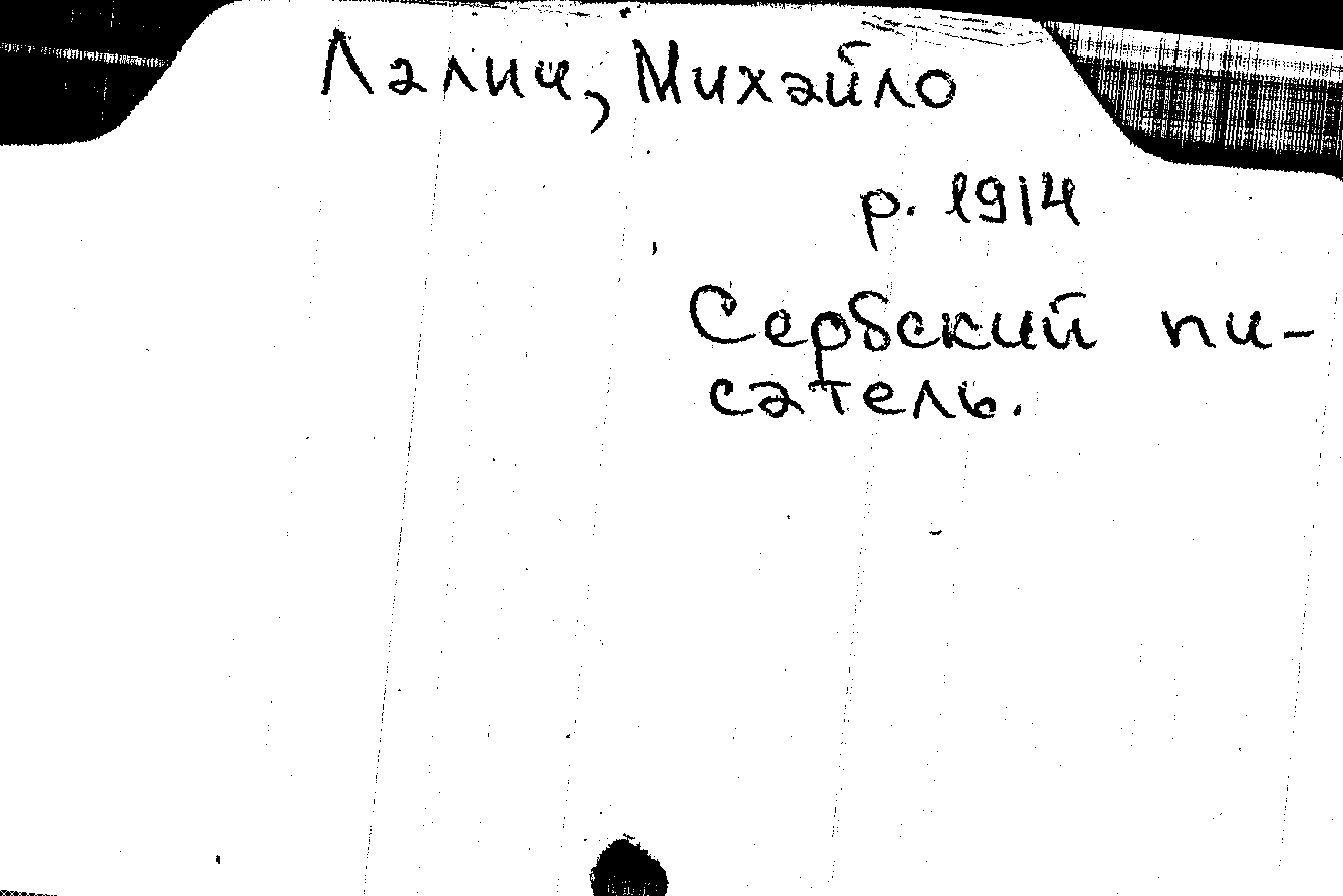 Лалич, Михайло
р. 1914
Сербский пи-
сатель.